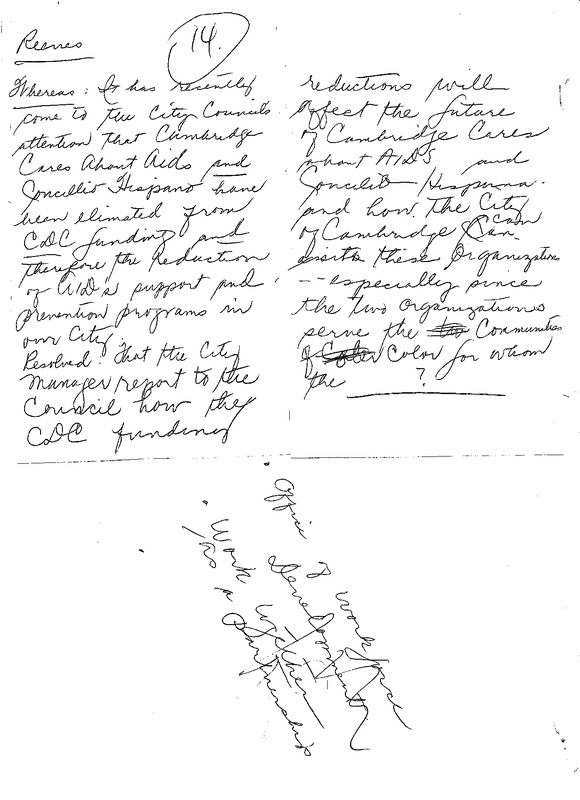 Reeves
14.
Whereas: It has recently
come to the City Council's
attention that Cambridge
Cares About Aids and
Concillio Hispano have
been elimated from
CDC funding and
therefore the Reduction
of AIDs support and
prevention programs in
our City.
Resolved: That the City
Manager report to the
Council how the
CDC funding
reductions will
affect the future
of Cambridge Cares
about AIDS and
Concilio Hispana.
and how the City
of Cambridge Can
these Organizations
-- especially since
the two organizations
serve the Communities
of Color for whom
the ?
Office of workforce
Development
Work together
as a
Partnership